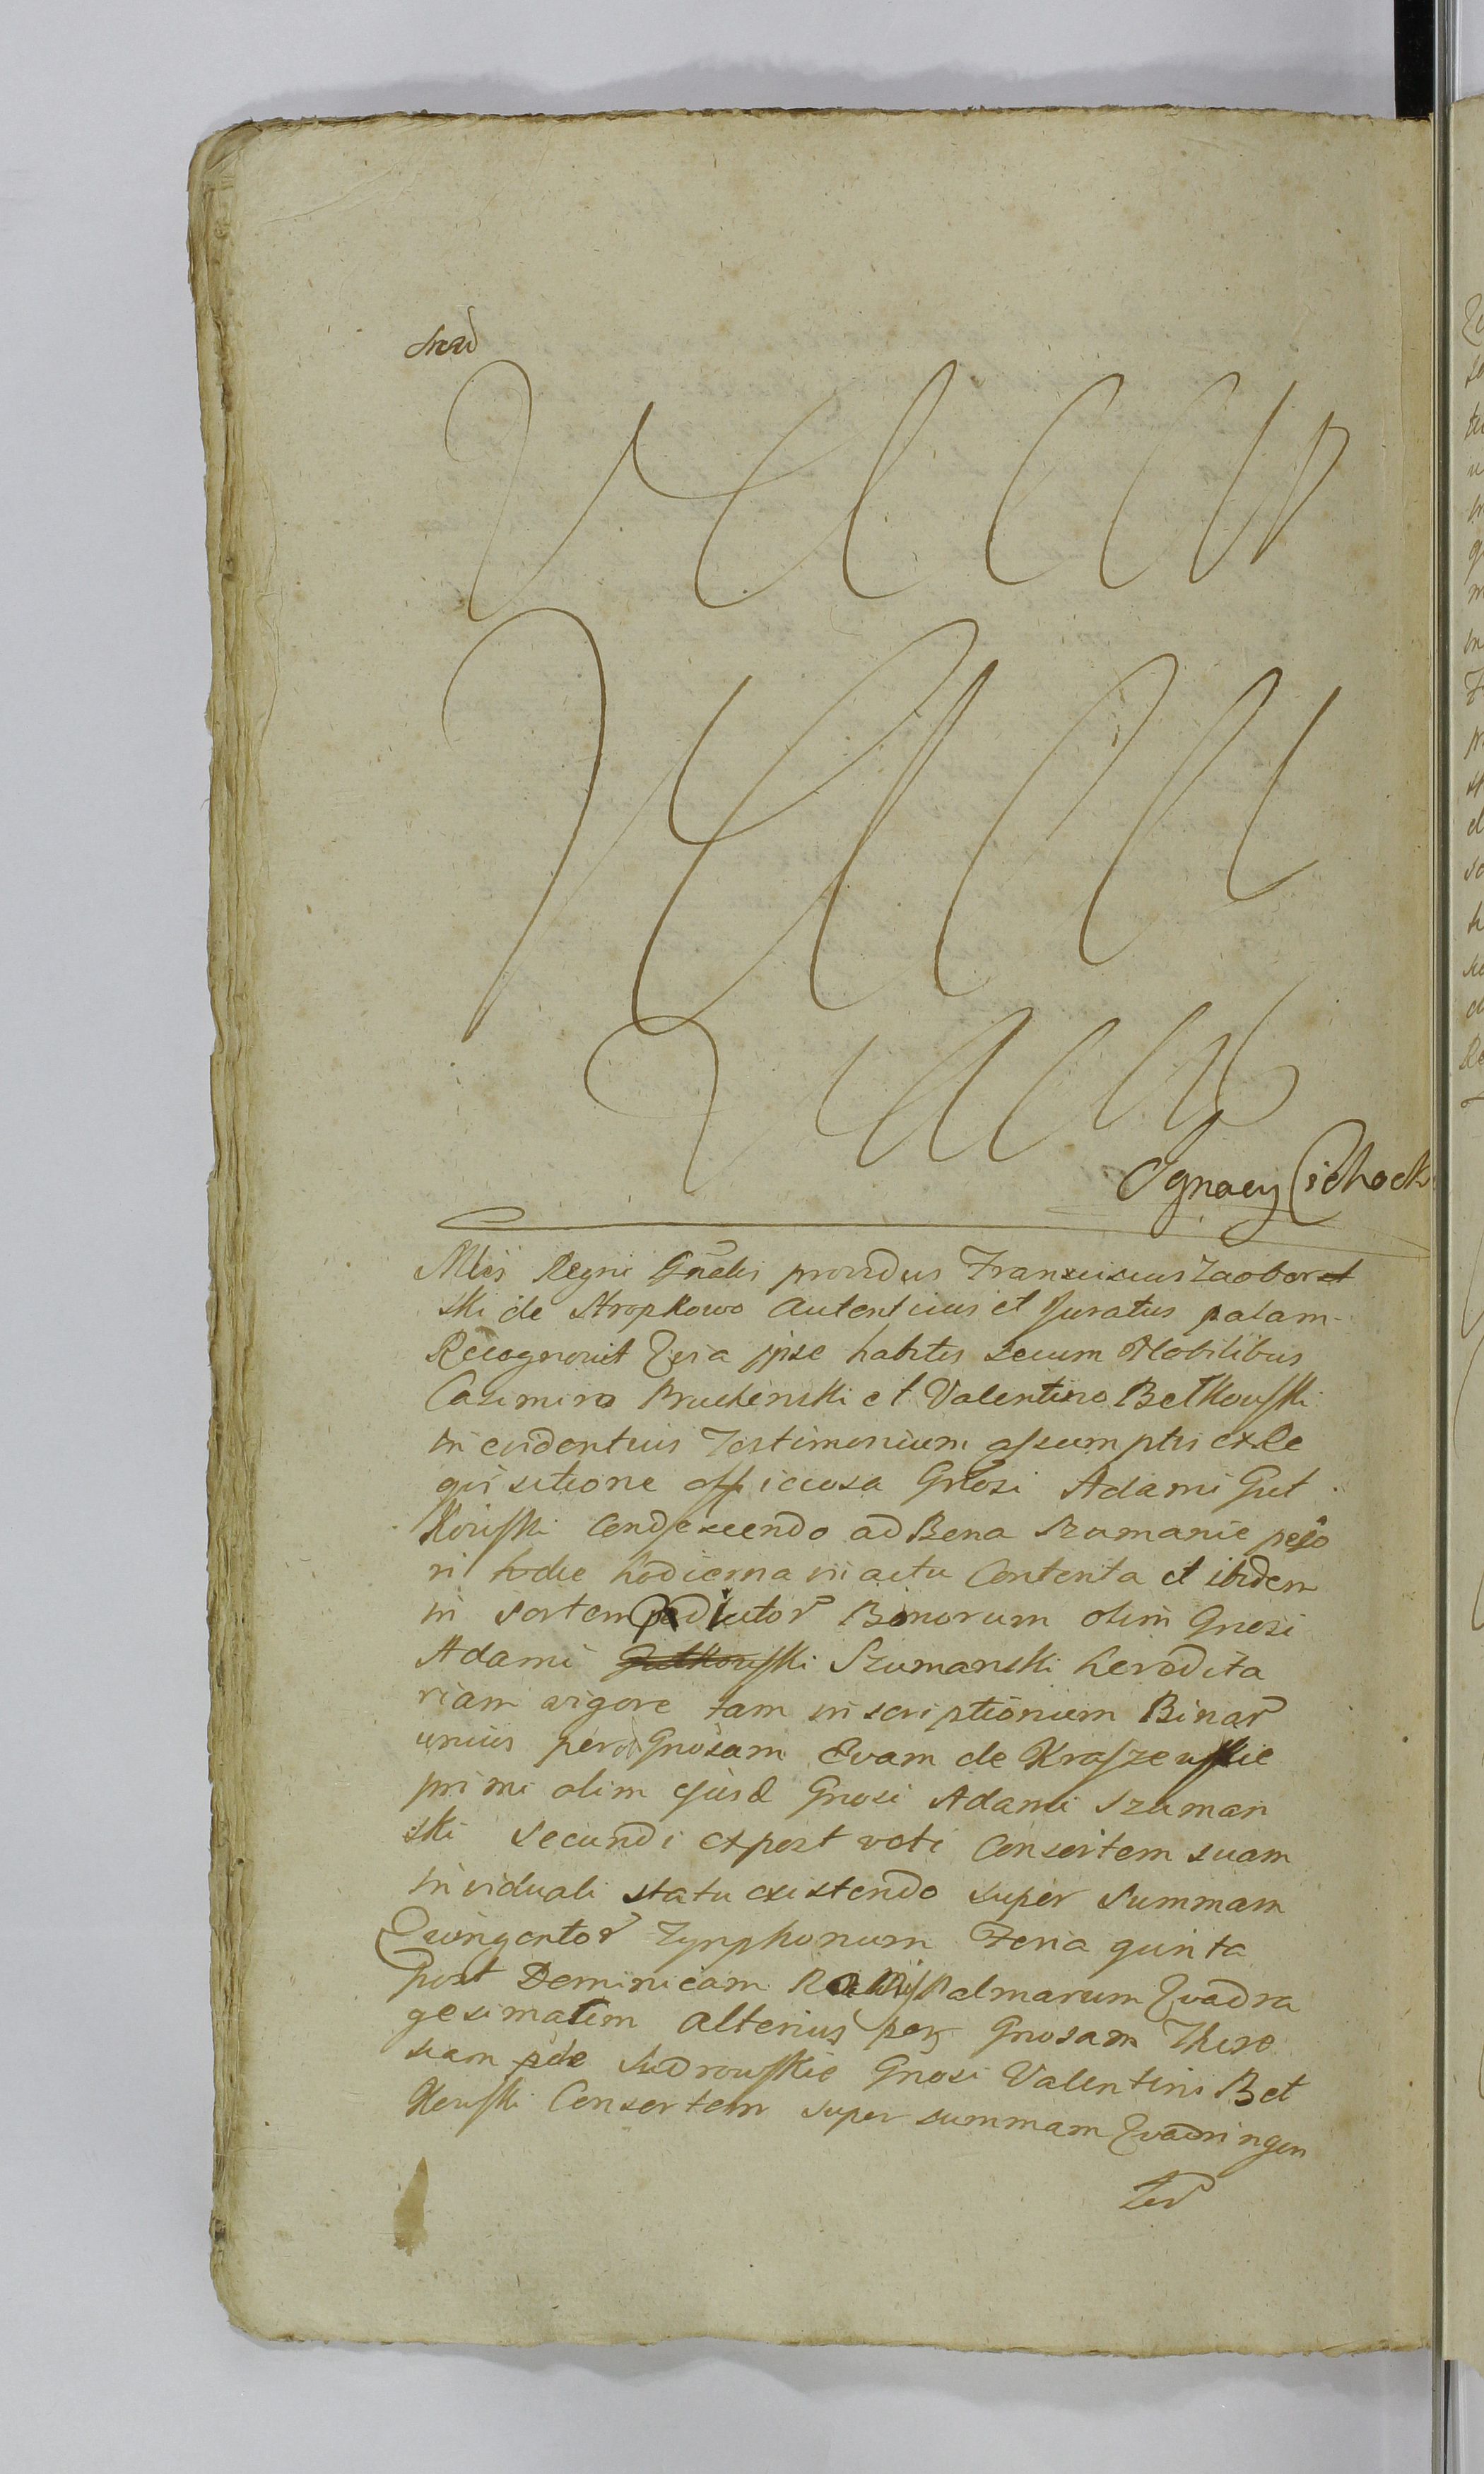 Ignacy Cichock
Mlis Regni Gnalis providus Franciscus Zaobor
ski de Stropkowo autenticus et Juratus palam
Recognovit Quia ipse habitis secum Nobilibus
Casimiro Pruchenski et Valentino Betkowski
in evidentius Testimonium assumptis ex Re
quisitione officiosa Gnosi Adami Gut
kowski Condescendo ad Bona Szumanie
ni hodie hodierna in actu Contenta et ibidem
in sortem Bonorum olim Gnosi
Adami Gutkowski Szumanski heredita
riam vigore tam inscriptionum Binar
unius per Gnosam Evam de Kraszewskie
primi olim ejusd Gnosi Adami Szuman
ski secundi expost voti Consortem suam
in viduali statu existendo super summam
Quingentor Tynphonum Feria quinta
post Dominicam Palmarum Quadra
gesimalem alterius per Gnosam There
siam de Sudrowskie Gnosi Valentini Bet
kowski Consortem super summam Quadringen
tor